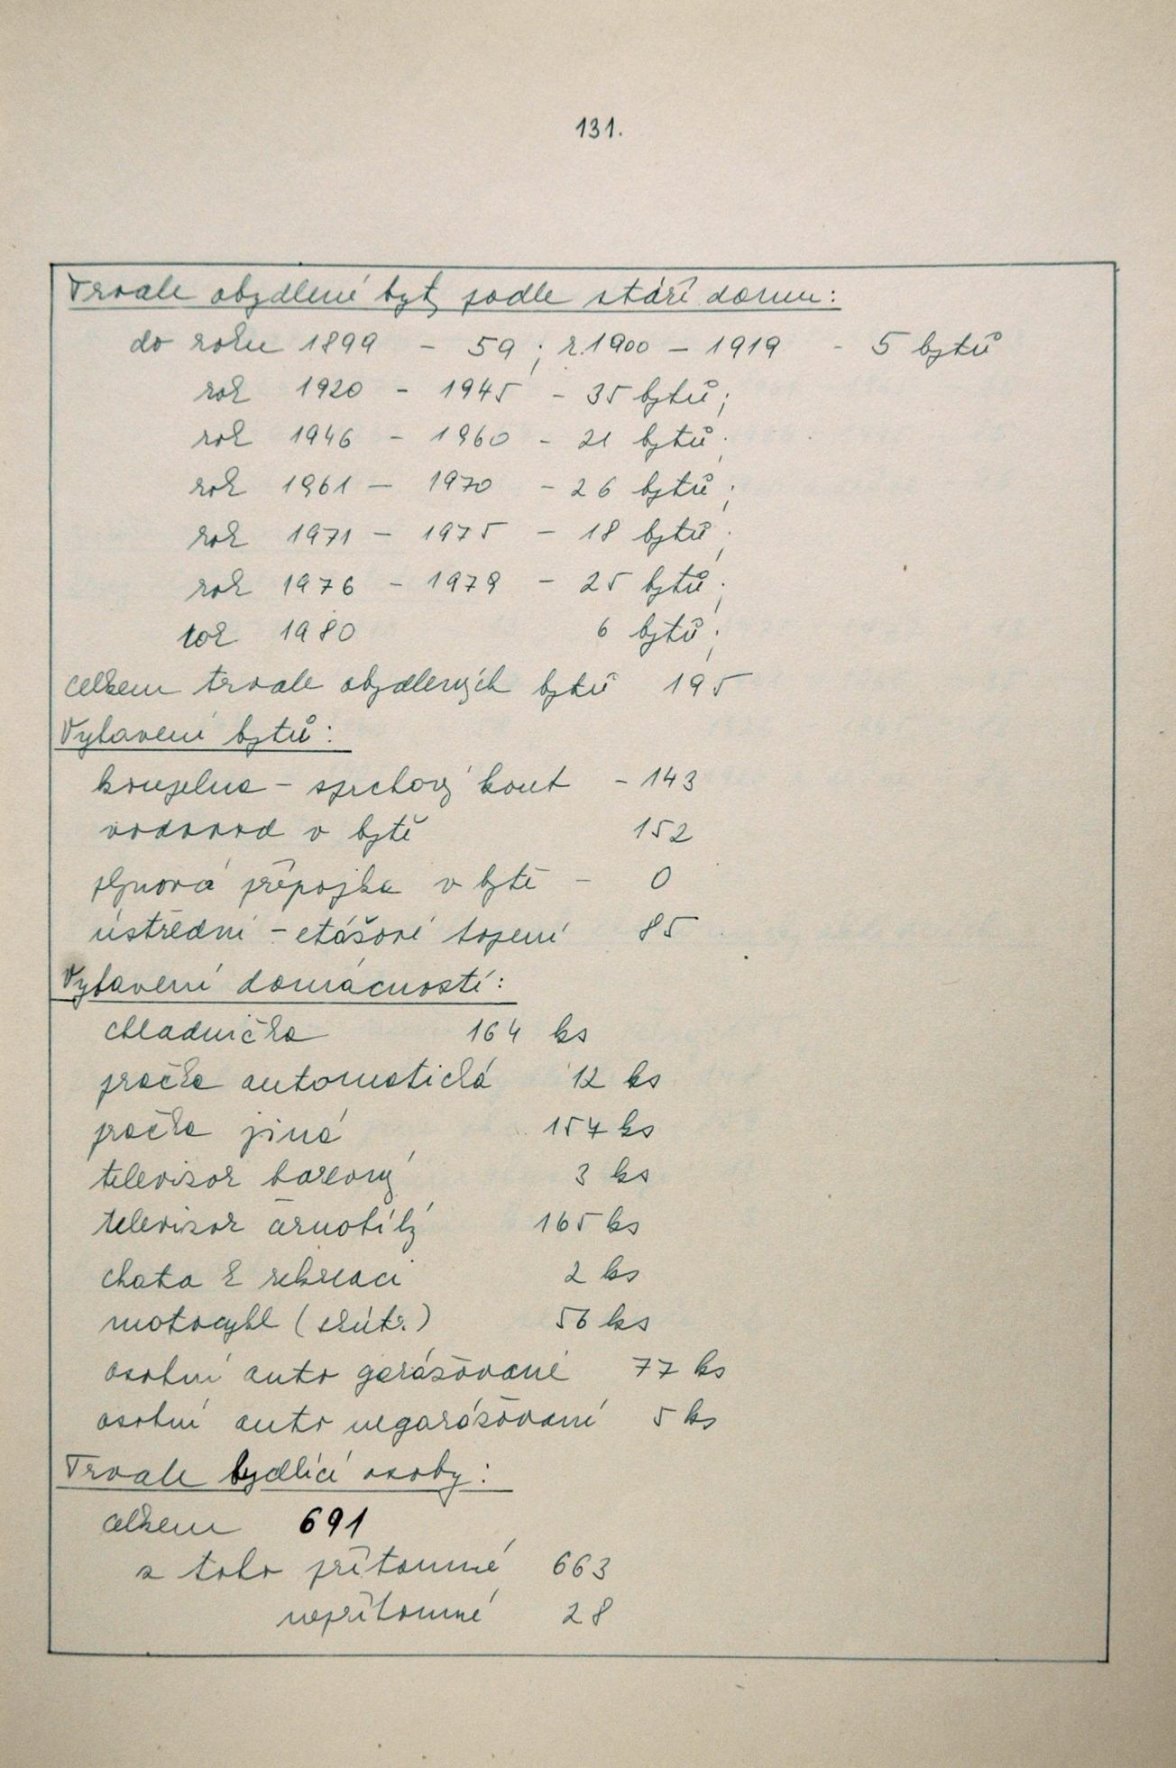 131.
Trvale obydlené byty podle stáří domu:
do roku 1899 - 59 ; r. 1900 - 1919 - 5 bytů
rok 1920 - 1945 - 35 bytů ;
rok 1946 - 1960 - 21 bytů ;
rok 1961 - 1970 - 26 bytů ;
rok 1971 - 1975 - 18 bytů ;
rok 1976 - 1979 - 25 bytů ;
rok 1980 6 bytů ;
celkem trvale obydlených bytů 195
Vybavení bytů :
koupelna - sprchový kout - 143
vodovod v bytě 152
plynová přípojka v bytě - 0
ústřední - etážové topení 85
Vybavení domácností :
chladnička 164 ks
pračka automatická 12 ks
pračka jiná 157 ks
televizor barevný 3 ks
televizor černobílý 165 ks
chata k rekreaci 2 ks
motocykl (skútr.) 56 ks
osobní auto garážované 77 ks
osobní auto negarážované 5 ks
Trvale bydlící osoby :
celkem 691
z toho přítomné 663
nepřítomné 28